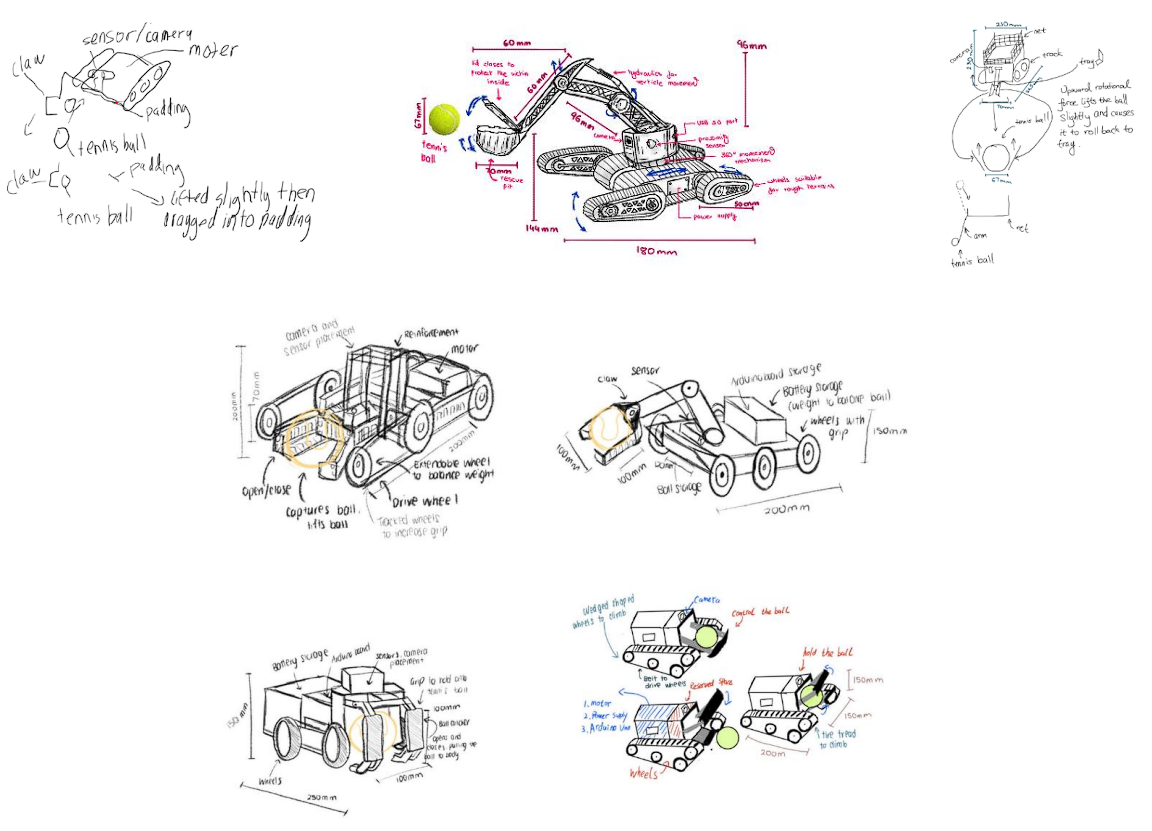 sensor/camera
moter
claw
padding
tennis ball
claw
padding
tennis ball
lifted slightly then
dragged into padding
60mm
96mm
lid closes to
protect the victim
inside
60mm
hydraulics for
verticle movement
67mm
tennis
ball
96mm
camera
USB 3.0 port
proximity
sensor
360° movement
mechanism
70mm
rescue
pit
wheels suitable
for rough terrains
50mm
power supply
144mm
180mm
230mm
net
camera
230mm
track
tray
70mm
Upward rotational
force lifts the ball
slightly and causes
it to roll back to
tray.
tennis ball
67mm
net
arm
tennis ball
camera and
sensor placement
Reinforcement
motor
200mm
70mm
200mm
open/close
captures ball,
lifts ball
Extendable wheel
to balance weight
Drive wheel
Tracked wheels
to increase grip
claw
sensor
Arduino board storage
Battery storage
(weight to balance ball)
wheels with
grip
150mm
100mm
100mm
Ball storage
200mm
Battery storage
Arduino board
sensors, camera
placement
Grip to hold onto
tennis ball
100mm
opens and
closes, pulling up
ball to body
150mm
wheels
100mm
250mm
Wedged shaped
wheels to climb
Camera
Control the ball
Belt to
drive wheels
1. motor
2. Power supply
3. Arduino Uno
Reserved Space
Wheels
hold the ball
150mm
150mm
tire tread
to climb
200m